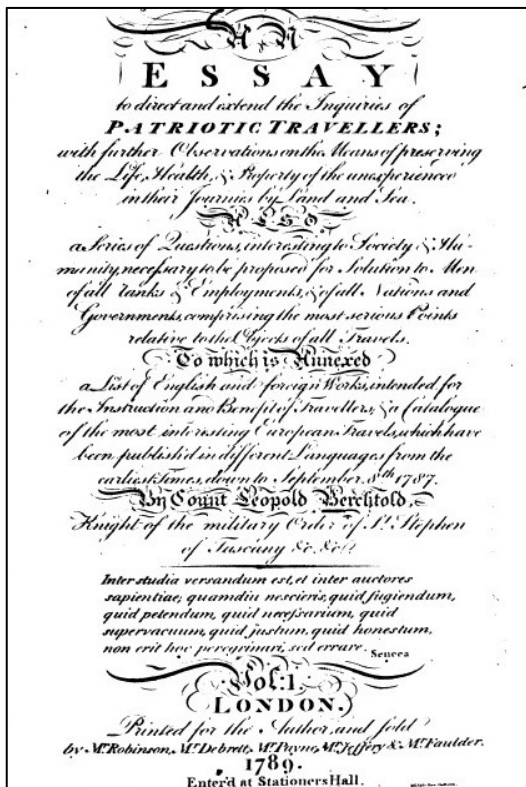 AN
ESSAY
to direct and extend the Inquiries of
PATRIOTIC TRAVELLERS;
with further Observations on the Means of preserving
the Life, Health, & Property of the unexperienced
in their Journies by Land and Sea.
ALSO
a Series of Questions, interesting to Society & Hu-
manity, necessary to be proposed for Solution to Men
of all Ranks & Employments, & of all Nations and
Governments, comprising the most serious Points
relative to the Objects of all Travels.
To which is Annexed
a List of English and foreign Works, intended for
the Instruction and Benefit of Travellers, & a Catalogue
of the most interesting European Travels, which have
been publish'd in different Languages from the
earliest Times, down to September 8th 1787.
By Count Leopold Berchtold,
Knight of the military Order of St. Stephen
of Tuscany &c. &c.
Inter studia versandum est, et inter auctores
sapientiae; quamdiu nescieris, quid fugiendum,
quid petendum, quid necessarium, quid
supervacuum, quid justum, quid honestum,
non erit hoc peregrinari, sed errare.
Seneca
Vol: I.
LONDON.
Printed for the Author, and sold
by Mr. Robinson, Mr. Debrett, Mr. Payne, Mr. Jeffery & Mr. Faulder.
1789.
Enter'd at Stationers Hall.